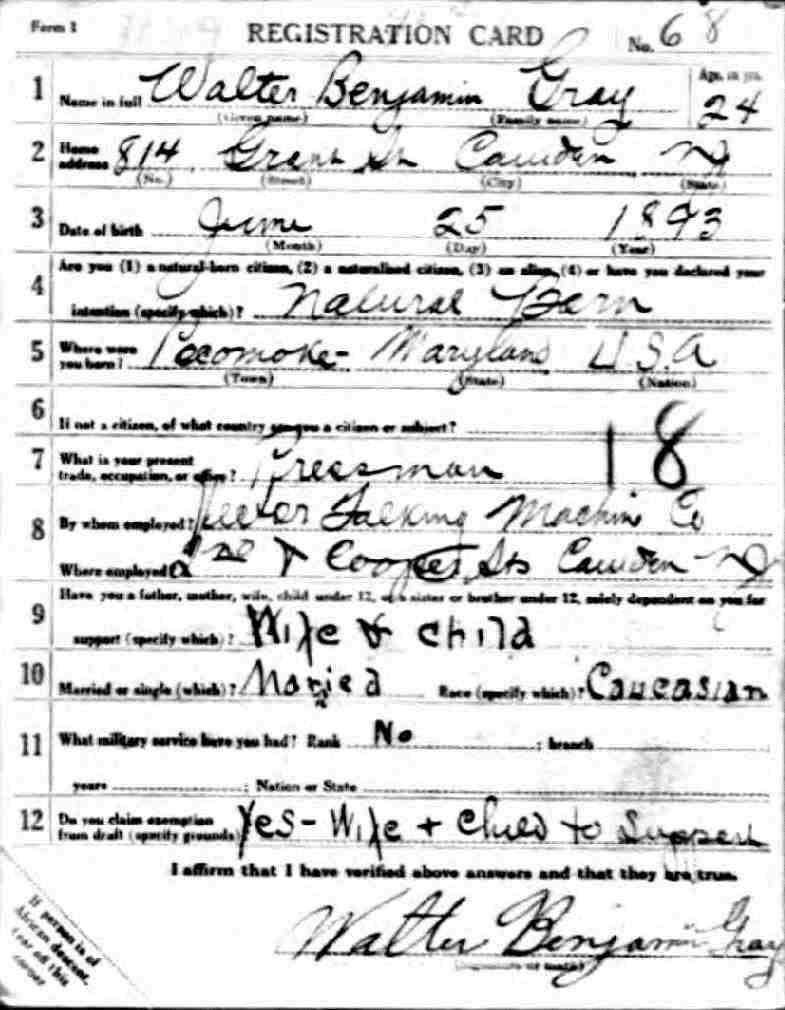 Form 1 REGISTRATION CARD No. 68
1 Name in full Walter Benjamin Gray Age, in yrs. 24
(Given name) (Family name)
2 Home address 814 Grant St Camden NJ
(No.) (Street) (City) (State)
3 Date of birth June 25 1893
(Month) (Day) (Year)
Are you (1) a natural-born citizen, (2) a naturalized citizen, (3) an alien, (4) or have you declared your
4 intention (specify which)? Natural Born
5 Where were you born? Pocomoke - Maryland U.S.A
(Town) (State) (Nation)
6 If not a citizen, of what country are you a citizen or subject?
7 What is your present trade, occupation, or office? Pressman 18
8 By whom employed? Victor Talking Machine Co
Where employed? 2nd & Cooper Sts Camden NJ
9 Have you a father, mother, wife, child under 12, or a sister or brother under 12, solely dependent on you for
support (specify which)? Wife & child
10 Married or single (which)? Maried Race (specify which)? Caucasian
11 What military service have you had? Rank No ; branch
years ; Nation or State
12 Do you claim exemption from draft (specify grounds)? Yes - Wife + Child to Support
I affirm that I have verified above answers and that they are true.
Walter Benjamin Gray
If person is of
African descent,
tear off this
corner